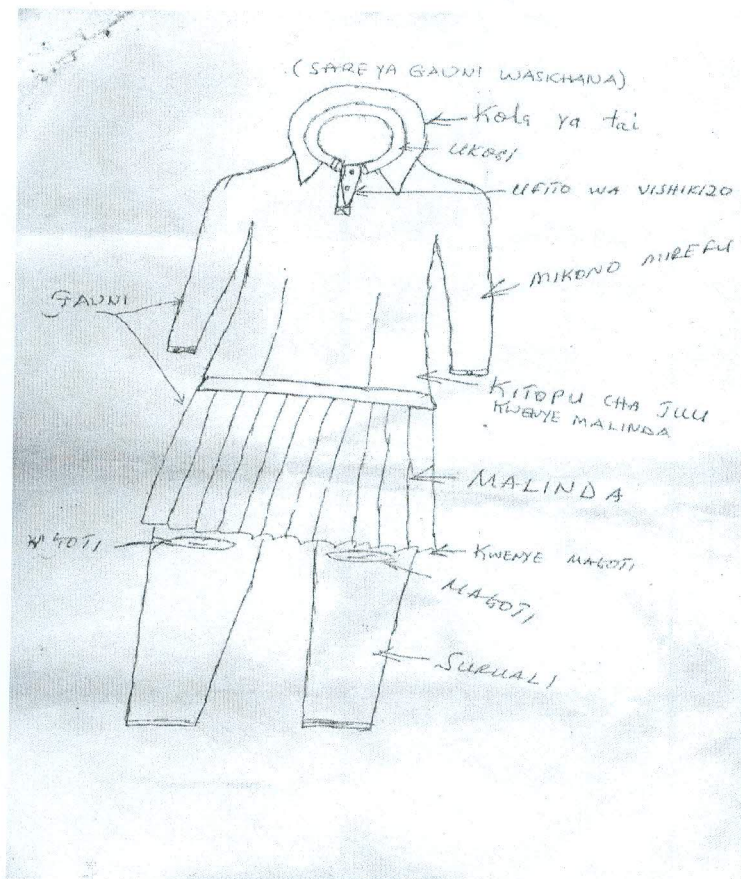 (SARE YA GAUNI WASICHANA)
Kola ya tai
UKOSI
UFITO WA VISHIKIZO
MIKONO MIREFU
GAUNI
KITOPU CHA JUU
KWENYE MALINDA
MALINDA
KWENYE MAGOTI
MAGOTI
SURUALI